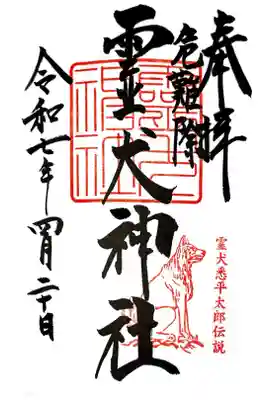 奉拝
危難除
靈犬神社
令和七年四月二十日
霊犬悉平太郎伝説